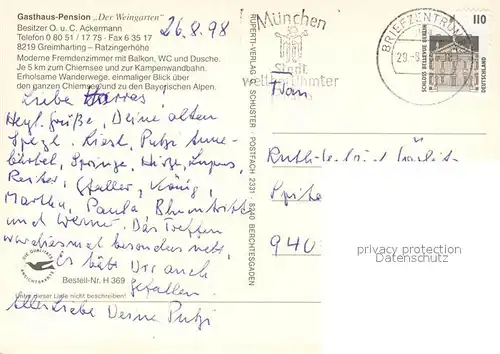 Gasthaus-Pension „Der Weingarten"
Besitzer O. u. C. Ackermann
Telefon 0 80 51 / 17 75 · Fax 6 35 17
8219 Greimharting - Ratzingerhöhe
Moderne Fremdenzimmer mit Balkon, WC und Dusche.
Je 5 km zum Chiemsee und zur Kampenwandbahn.
Erholsame Wanderwege, einmaliger Blick über
den ganzen Chiemsee und zu den Bayrischen Alpen.
26.8.98
Liebe
Herzl. Grüße, Deine alten
Spezl. Liesl, Putzi Anne-
bärbel, Lupus,
König,
Martha, Paula
und Werner. Das Treffen
war diesmal besonders nett,
Es hätte Dir auch
gefallen.
Alles Liebe Deine Putzi
DIE QUALITÄTS
ANSICHTSKARTE
Bestell-Nr. H 369
Unter dieser Linie nicht beschreiben!
RUPERTI-VERLAG SCHUSTER POSTFACH 2331 · 8240 BERCHTESGADEN
München
Stadt
BRIEFZENTRUM
110
SCHLOSS BELLEVUE BERLIN
DEUTSCHLAND
Frau
940
privacy protection
Datenschutz